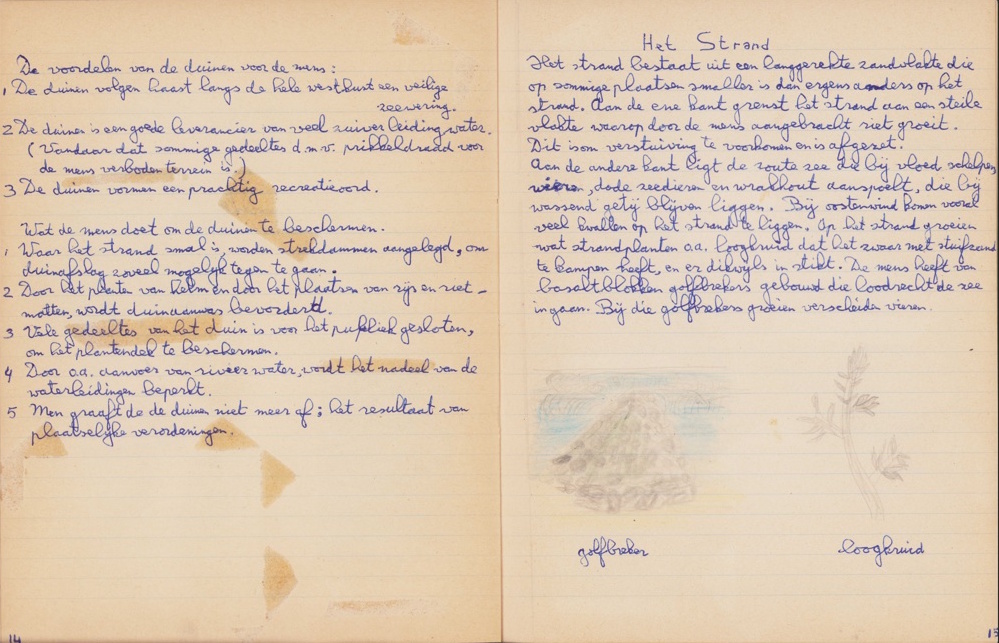 De voordelen van de duinen voor de mens:
1 De duinen volgen haast langs de hele westkust een veilige
zeewering.
2 De duinen is een goede leverancier van veel zuiver leidingwater.
(Vandaar dat sommige gedeeltes d.m.v. prikkeldraad voor
de mens verboden terrein is.)
3 De duinen vormen een prachtig recreatieoord.
Wat de mens doet om de duinen te beschermen.
1 Waar het strand smal is, worden strekdammen aangelegd, om
duinafslag zoveel mogelijk tegen te gaan.
2 Door het planten van helm en door het plaatsen van rijs en riet-
matten, wordt duinaanwas bevorderd.
3 Vele gedeeltes van het duin is voor het publiek gesloten,
om het plantendek te beschermen.
4 Door o.a. aanvoer van rivier water, wordt het nadeel van de
waterleidingen beperkt.
5 Men graaft de de duinen niet meer af; het resultaat van
plaatselijke verordeningen.
14
Het Strand
Het strand bestaat uit een langgerekte zandvlakte die
op sommige plaatsen smaller is dan ergens anders op het
strand. Aan de ene kant grenst het strand aan een steile
vlakte waarop door de mens aangebracht riet groeit.
Dit is om verstuiving te voorkomen en is afgezet.
Aan de andere kant ligt de zoute zee die bij vloed schelpen
wieren, dode zeedieren en wrakhout aanspoelt, die bij
wassend getij blijven liggen. Bij oostenwind komen vooral
veel kwallen op het strand te liggen. Op het strand groeien
wat strandplanten o.a. loogkruid dat het zwaar met stuifzand
te kampen heeft, en er dikwijls in stikt. De mens heeft van
basaltblokken golfbrekers gebouwd die loodrecht de zee
in gaan. Bij die golfbrekers groeien verscheiden wieren.
golfbreker
loogkruid
15